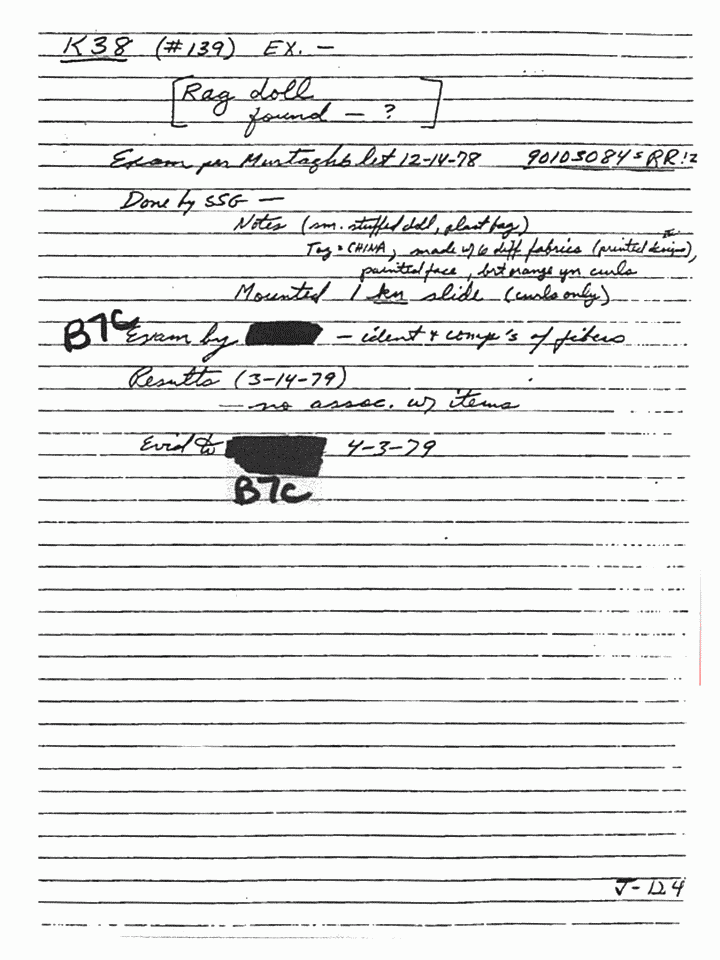 K38 (#139) EX. —
[Rag doll
found — ?]
Exam per Murtagh's let 12-14-78 90103084 S RR
Done by SSG —
Notes (sm. stuffed doll, plast bag)
Tag = CHINA, made w/ 6 diff fabrics (printed designs),
painted face, brt orange yn curls
Mounted 1 kn slide (curls only)
B7C Exam by — ident + comp's of fibers
Results (3-14-79)
— no assoc. w/ items
Evid to 4-3-79
B7C